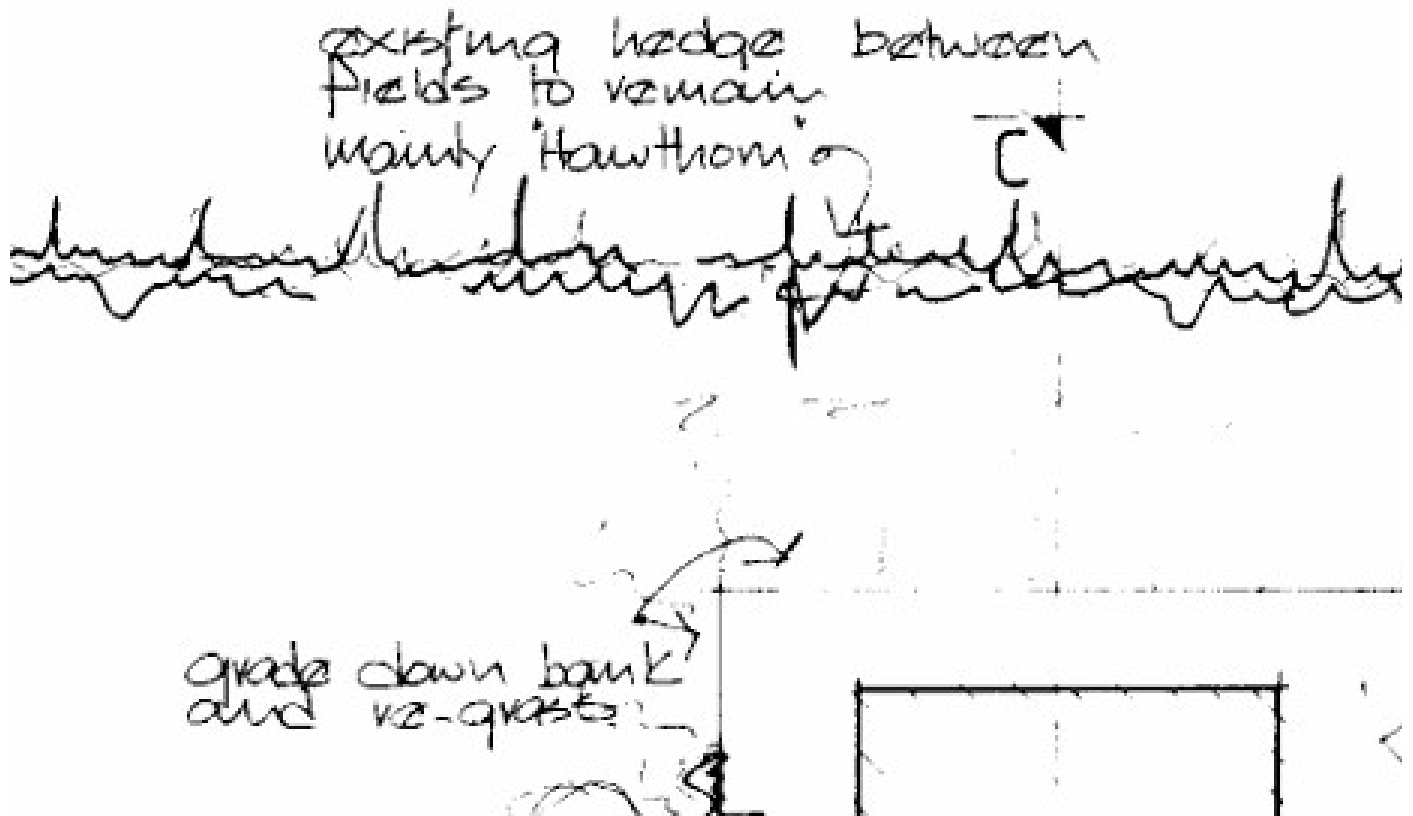 existing hedge between
fields to remain
mainly 'Hawthorn'
C
grade down bank
and re-grass